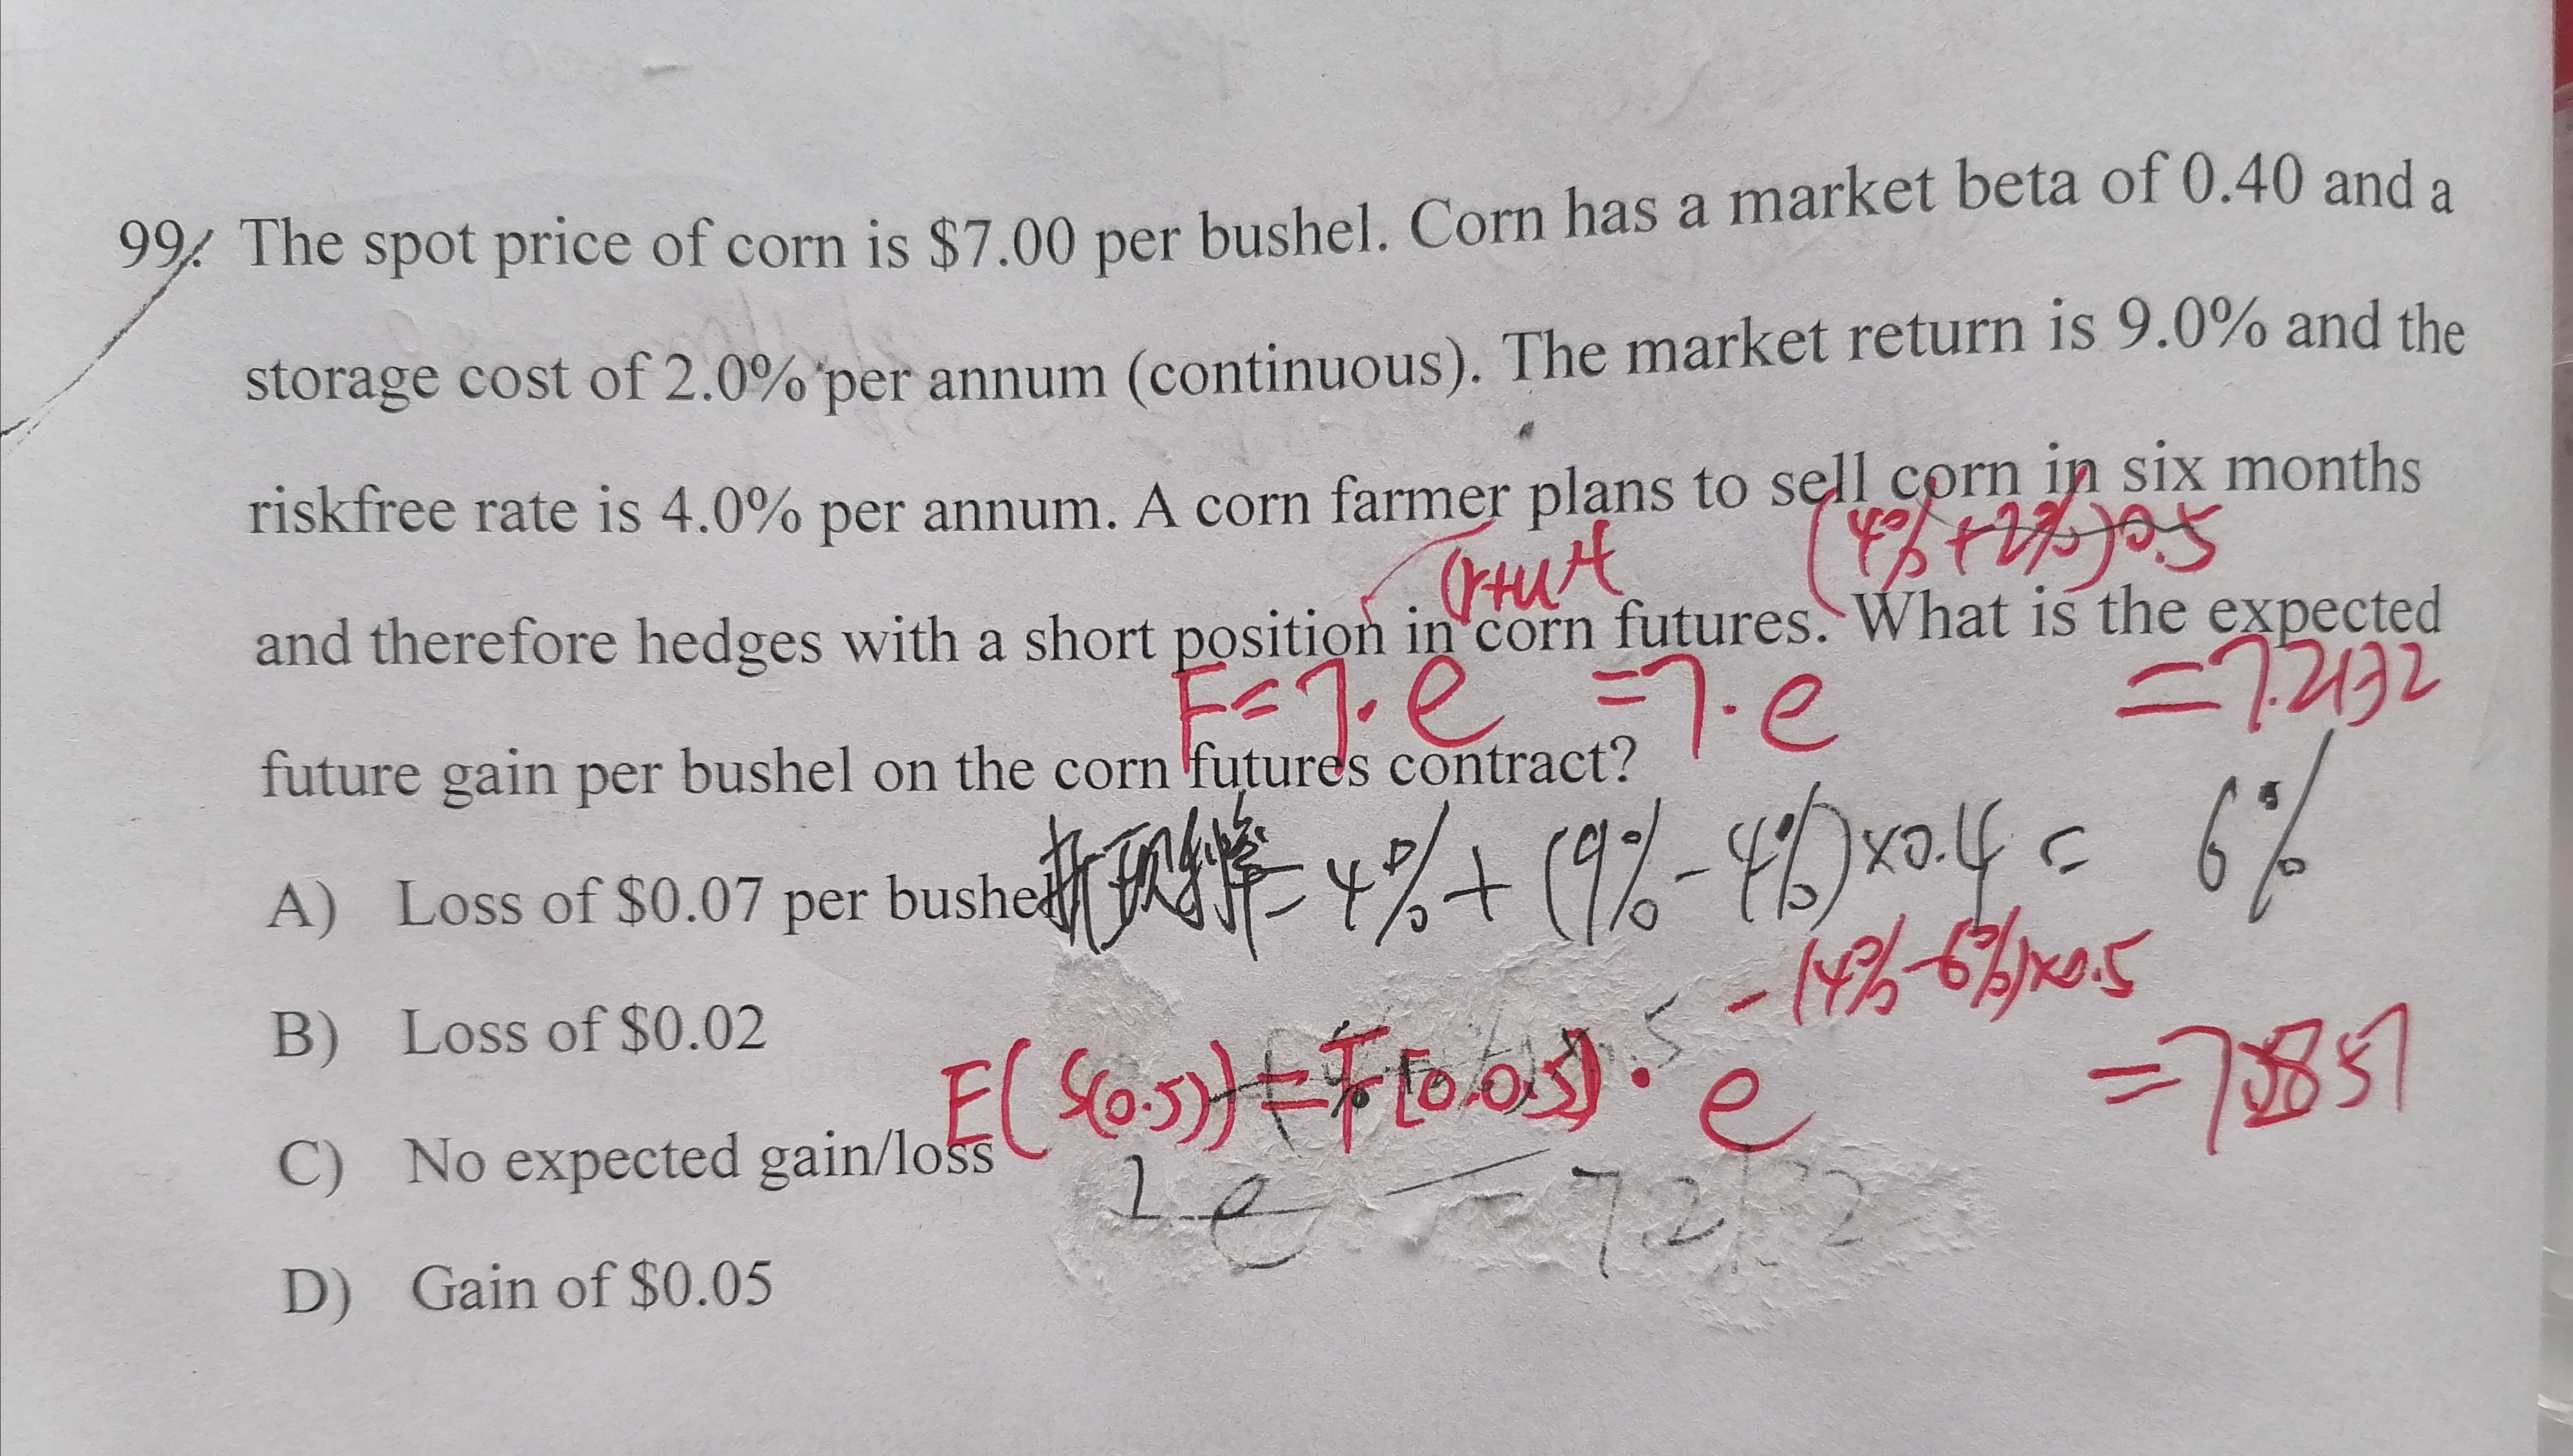 99. The spot price of corn is $7.00 per bushel. Corn has a market beta of 0.40 and a
storage cost of 2.0% per annum (continuous). The market return is 9.0% and the
riskfree rate is 4.0% per annum. A corn farmer plans to sell corn in six months
(r+u)t (4%+2%)0.5
and therefore hedges with a short position in corn futures. What is the expected
F=7·e =7·e =7.2132
future gain per bushel on the corn futures contract?
A) Loss of $0.07 per bushel
折现利率=4%+(9%-4%)×0.4= 6%
B) Loss of $0.02
-(4%-6%)×0.5
E(S(0.5))=F[0.0.5]·e
C) No expected gain/loss
7.2132
D) Gain of $0.05